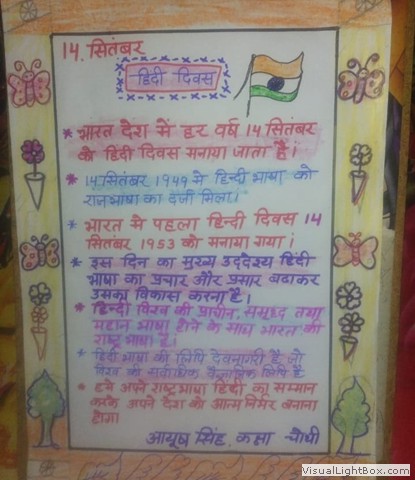 14. सितंबर
हिंदी दिवस
* भारत देश में हर वर्ष 14 सितंबर
को हिंदी दिवस मनाया जाता है।
* 14 सितंबर 1949 मे हिन्दी भाषा को
राजभाषा का दर्जा मिला।
* भारत मे पहला हिन्दी दिवस 14
सितंबर 1953 को मनाया गया।
* इस दिन का मुख्य उद्देश्य हिंदी
भाषा का प्रचार और प्रसार बढाकर
उसका विकास करना है।
* हिन्दी विश्व की प्राचीन, समृध्द तथा
महान भाषा होने के साथ भारत की
राष्ट्र भाषा है।
* हिंदी भाषा की लिपि देवनागरी है जो
विश्व की सर्वाधिक वैज्ञानिक लिपि है
* हमे अपने राष्ट्रभाषा हिंदी का सम्मान
करके अपने देश को आत्म निर्भर बनाना
होगा
आयुष सिंह, कक्षा - चौथी
VisualLightBox.com